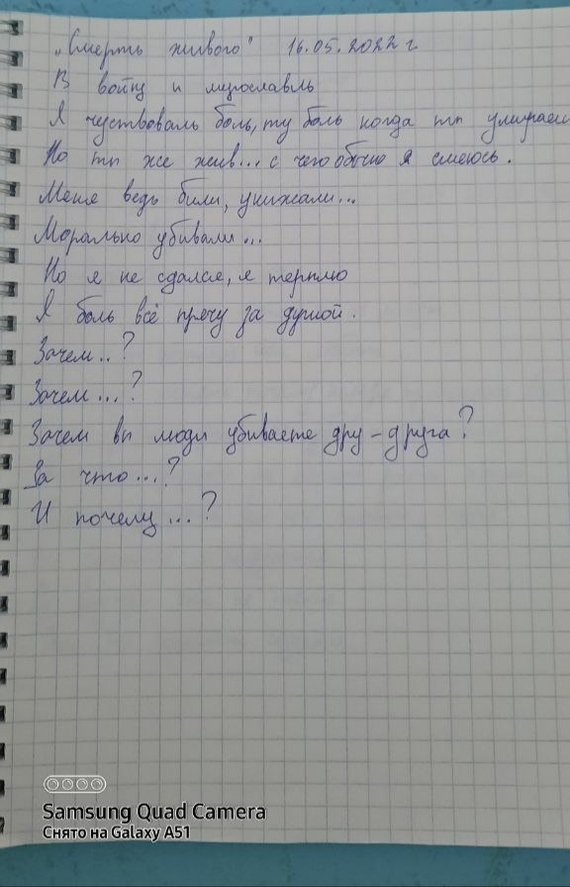 „Смерть живого" 16.05.2022 г.
В войну и
Я чуствоваль боль, ту боль когда ты умираеш
Но ты же жив... с чего обычно я смеюсь.
Меня ведь били, унижали...
Морально убивали...
Но я не сдался, я терплю
Я боль всё прячу за душой.
Зачем..?
Зачем...?
Зачем вы люди убиваете дру-друга?
За что...?
И почему...?
Samsung Quad Camera
Снято на Galaxy A51